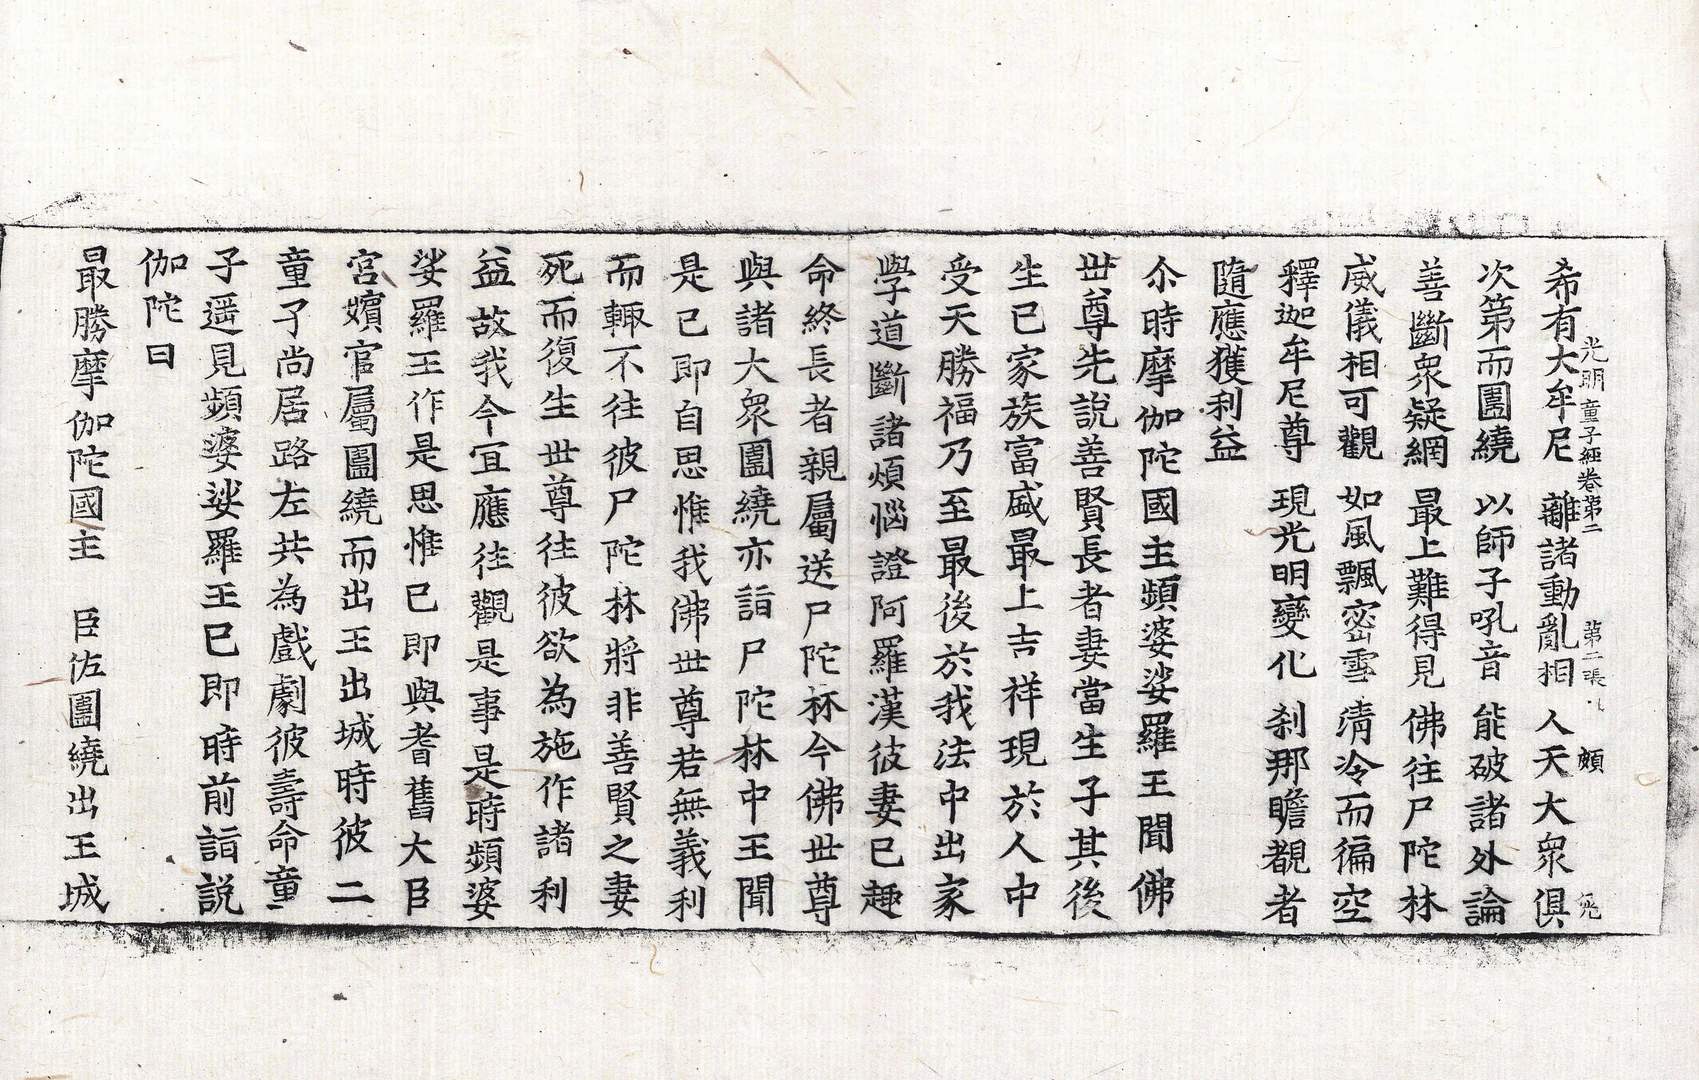 光明童子經卷第二 第二張 頗
希有大牟尼 離諸動亂相 人天大衆俱
次第而圍繞 以師子吼音 能破諸外論
善斷衆疑網 最上難得見 佛往尸陀林
威儀相可觀 如風飄密雪 淸冷而徧空
釋迦牟尼尊 現光明變化 刹那瞻覩者
隨應獲利益
尒時摩伽陀國主頻婆娑羅王聞佛
世尊先說善賢長者妻當生子其後
生已家族富盛最上吉祥現於人中
受天勝福乃至最後於我法中出家
學道斷諸煩惱證阿羅漢彼妻已趣
命終長者親屬送尸陀林今佛世尊
與諸大衆圍繞亦詣尸陀林中王聞
是已即自思惟我佛世尊若無義利
而輙不往彼尸陀林將非善賢之妻
死而復生世尊往彼欲為施作諸利
益故我今宜應往觀是事是時頻婆
娑羅王作是思惟已即與耆舊大臣
宮嬪官屬圍繞而出王出城時彼二
童子尚居路左共為戲劇彼壽命童
子遥見頻婆娑羅王已即時前詣說
伽陀曰
最勝摩伽陀國主 臣佐圍繞出王城